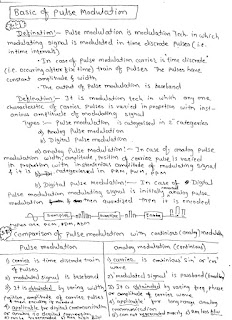 Basic of Pulse Modulation
Definition:- Pulse modulation is modulation Tech in which
modulating signal is modulated in time discrete pulses (i.e.
in time intervals)
· In case of pulse modulation carrier is time discrete
(i.e. occuring after fix time) train of Pulses. The pulses have
constant amplitude & width
· The output of pulse modulation is baseband
Defination:- It is modulation tech in which any one
characteristic of carrier Pulses is varied in proportion with inst-
antanious amplitude of modulating signal
Types :- Pulse modulation is categorised in 2 categories
a) Analog Pulse modulation
b) Digital Pulse modulation
a) Analog Pulse modulation :- In case of analog pulse
modulation width, amplitude, position of carrier pulse is varied
in proportion with instantanious amplitude of modulating signal
& it is categorised in PAM, PWM, PPM
b) Digital Pulse modulation:- In case of Digital
Pulse modulation modulating signal is initially analog pulse
modulation then quantised then it is encoded
Comparison of pulse modulation with continious (analog) modulation
Pulse modulation
analog modulation (continious)
1) carrier is time discrete train
of pulses
1) carrier is continious 'sin' or 'cos'
wave
2) modulated signal is baseband
2) modulated signal is
3) It is obtained by varing width,
position, amplitude of carrier pulses
3) It is obtained by varing freq, phase
or amplitude of carrier wave
4) applicable for digital communication
4) applicable for long range analog
communication